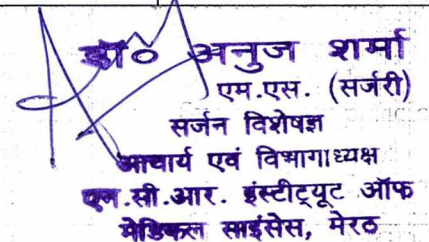 डॉ० अनुज शर्मा
एम.एस. (सर्जरी)
सर्जन विशेषज्ञ
आचार्य एवं विभागाध्यक्ष
एन.सी.आर. इंस्टीट्यूट ऑफ
मेडिकल साइंसेस, मेरठ